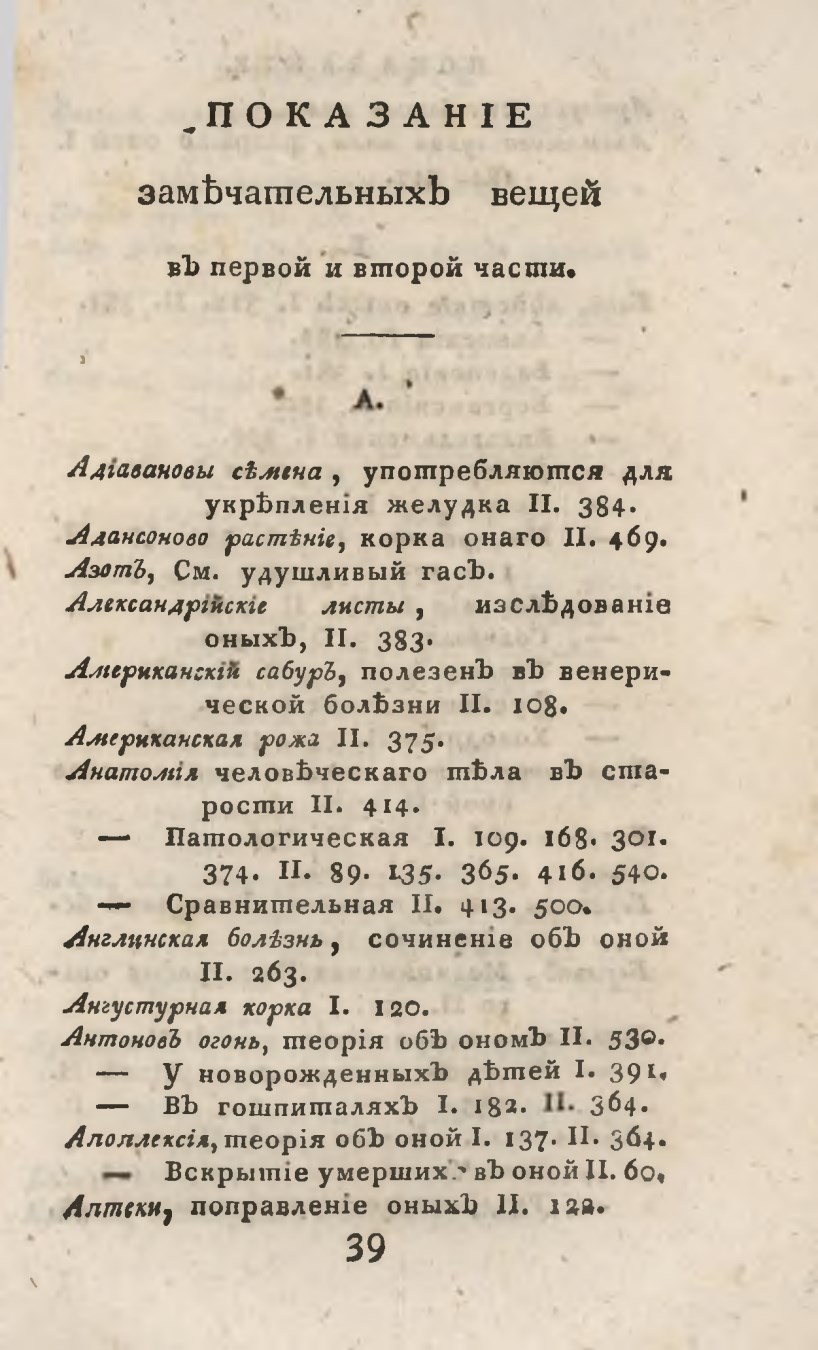 ПОКАЗАНІЕ
замѣчательныхъ вещей
въ первой и второй части.
А.
Адіавановы сѣмена, употребляются для
укрѣпленія желудка II. 384.
Адансоново растѣніе, корка онаго II. 469.
Азотъ, См. удушливый гасъ.
Александрійскіе листы, изслѣдованіе
оныхъ, II. 383.
Американскій сабуръ, полезенъ въ венери-
ческой болѣзни II. 108.
Американская рожа II. 375.
Анатомія человѣческаго тѣла въ ста-
рости II. 414.
— Патологическая I. 109. 168. 301.
374. II. 89. 135. 365. 416. 540.
— Сравнительная II. 413. 500.
Англинская болѣзнь, сочиненіе объ оной
II. 263.
Ангустурная корка I. 120.
Антоновъ огонь, теорія объ ономъ II. 530.
— У новорожденныхъ дѣтей I. 391.
— Въ гошпиталяхъ I. 182. II. 364.
Апоплексія, теорія объ оной I. 137. II. 364.
— Вскрытіе умерших въ оной II. 60.
Аптеки, поправленіе оныхъ II. 122.
39